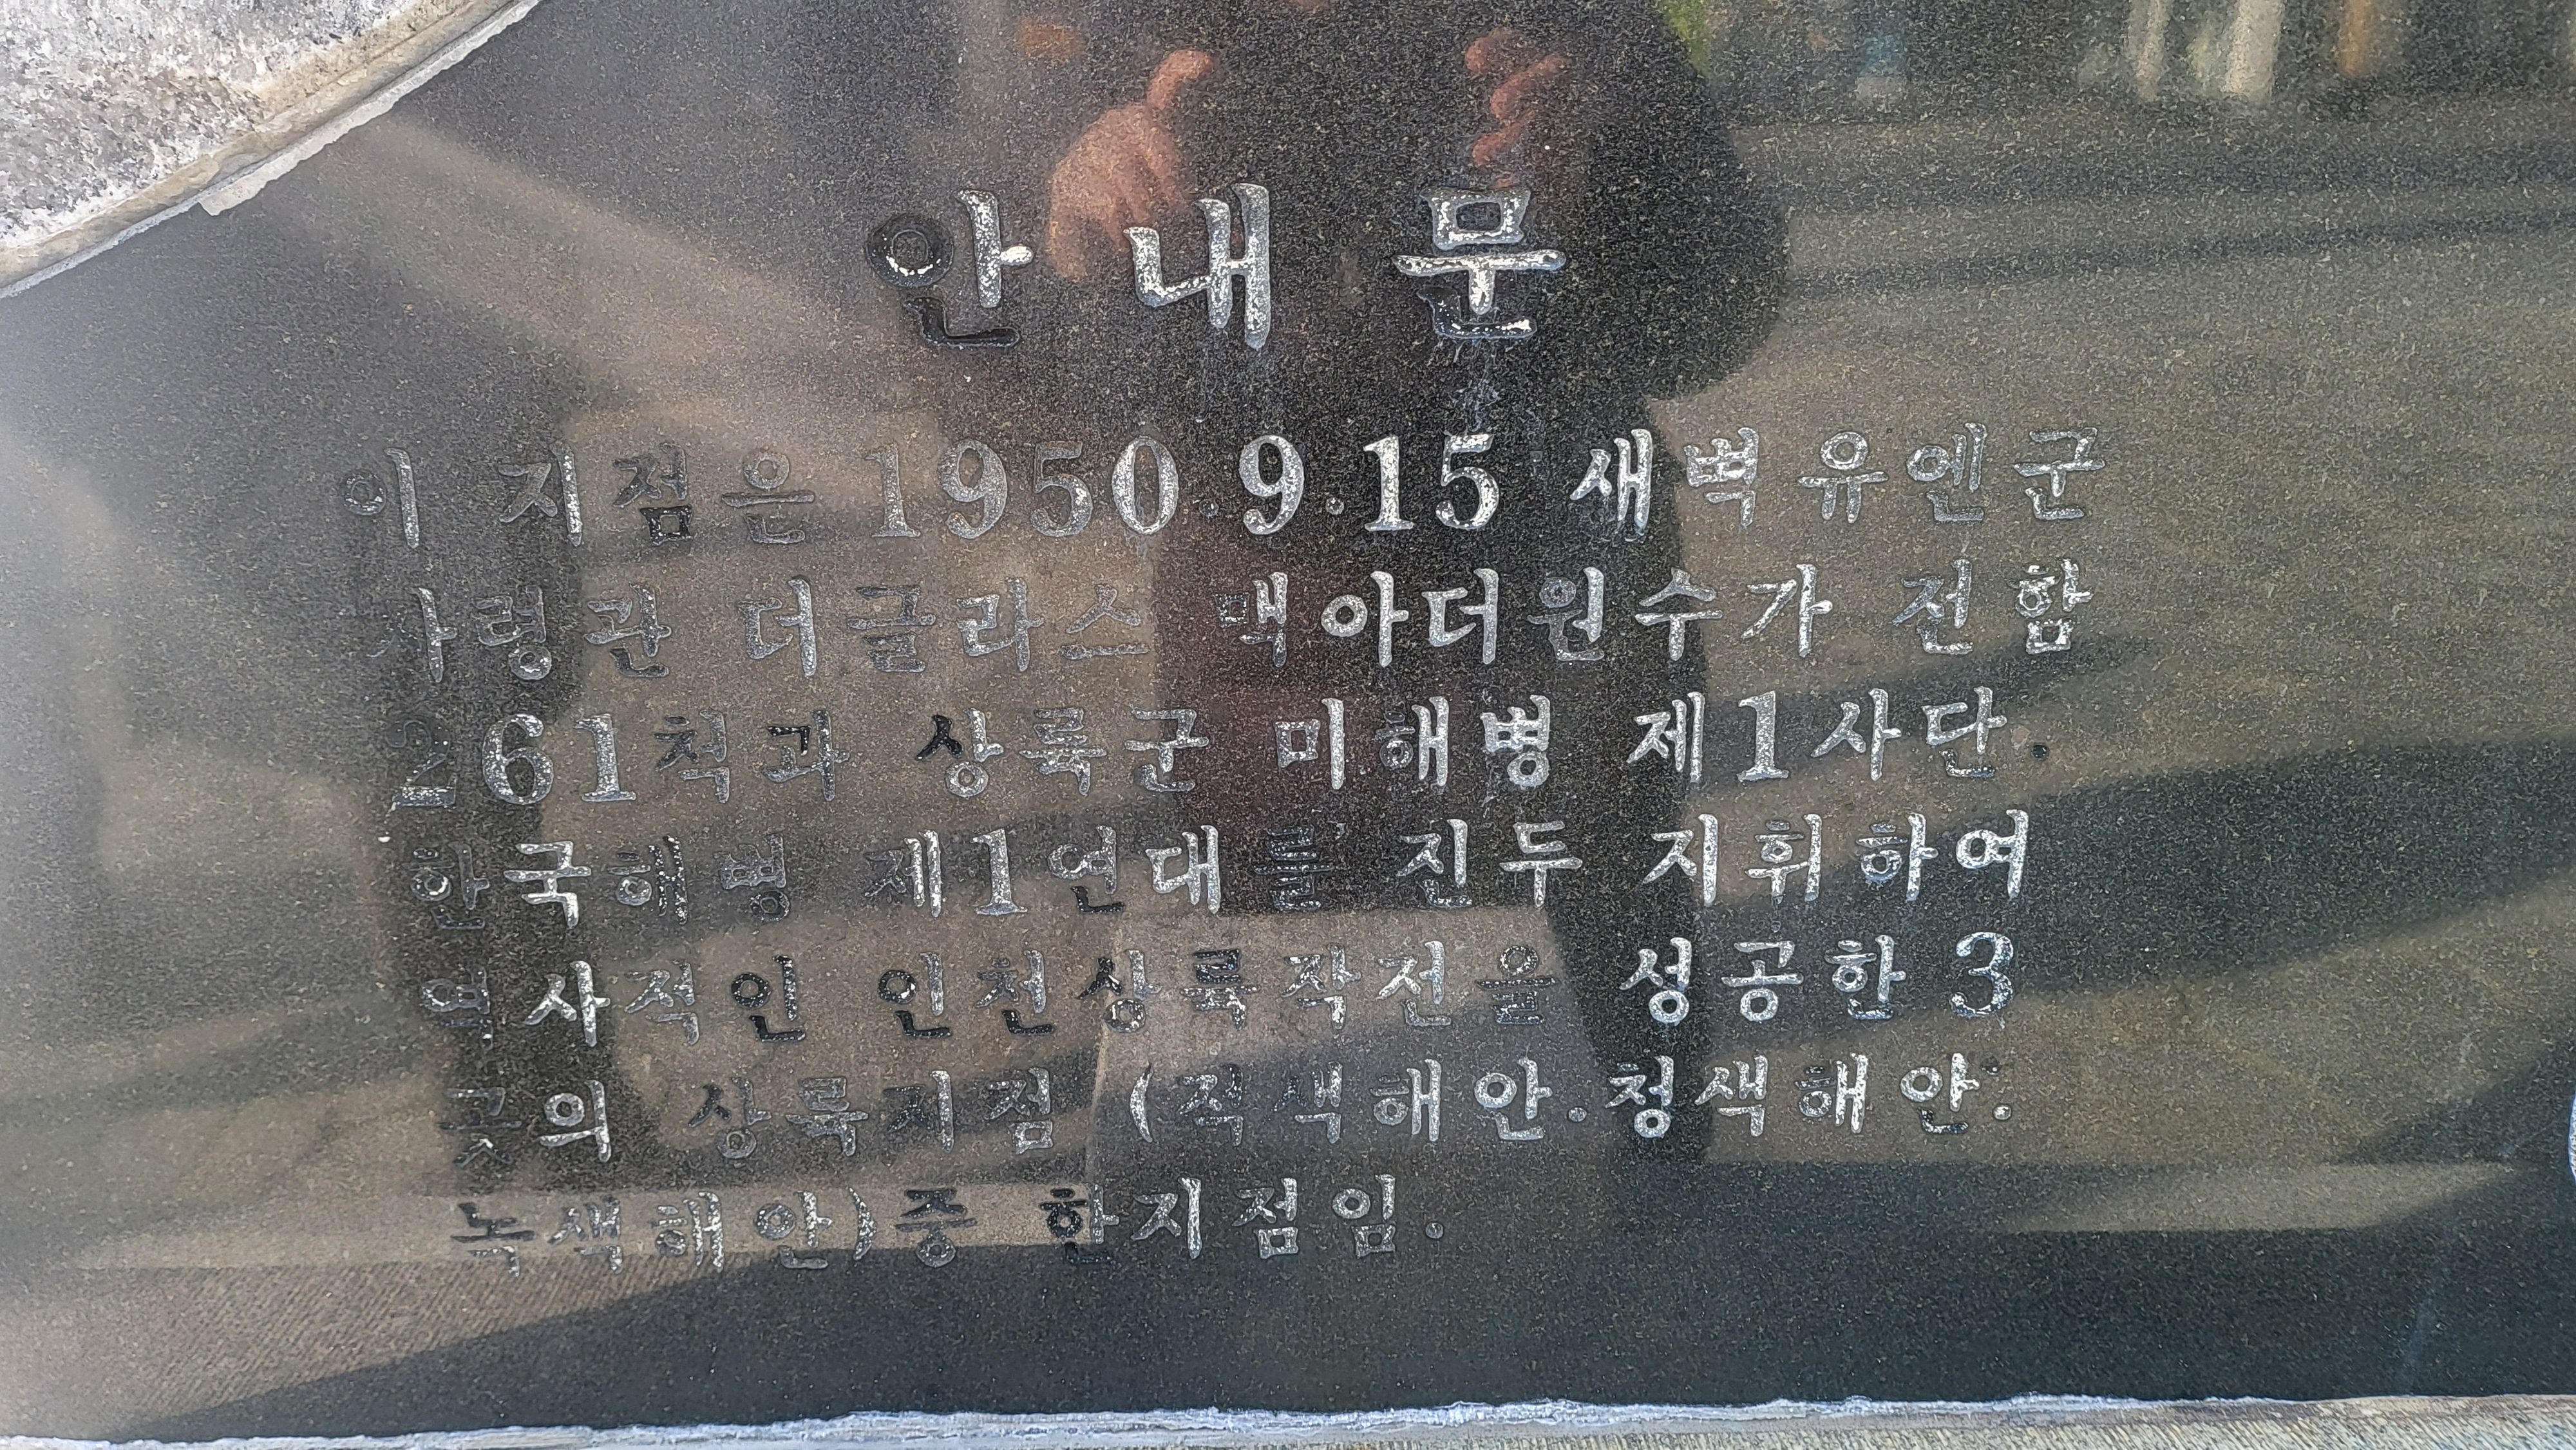 안내문
이 지점은 1950.9.15 새벽 유엔군
사령관 더글라스 맥아더원수가 전함
261척과 상륙군 미해병 제1사단.
한국해병 제1연대를 진두 지휘하여
역사적인 인천상륙작전을 성공한 3
곳의 상륙지점 (적색해안.청색해안.
녹색해안)중 한지점임.